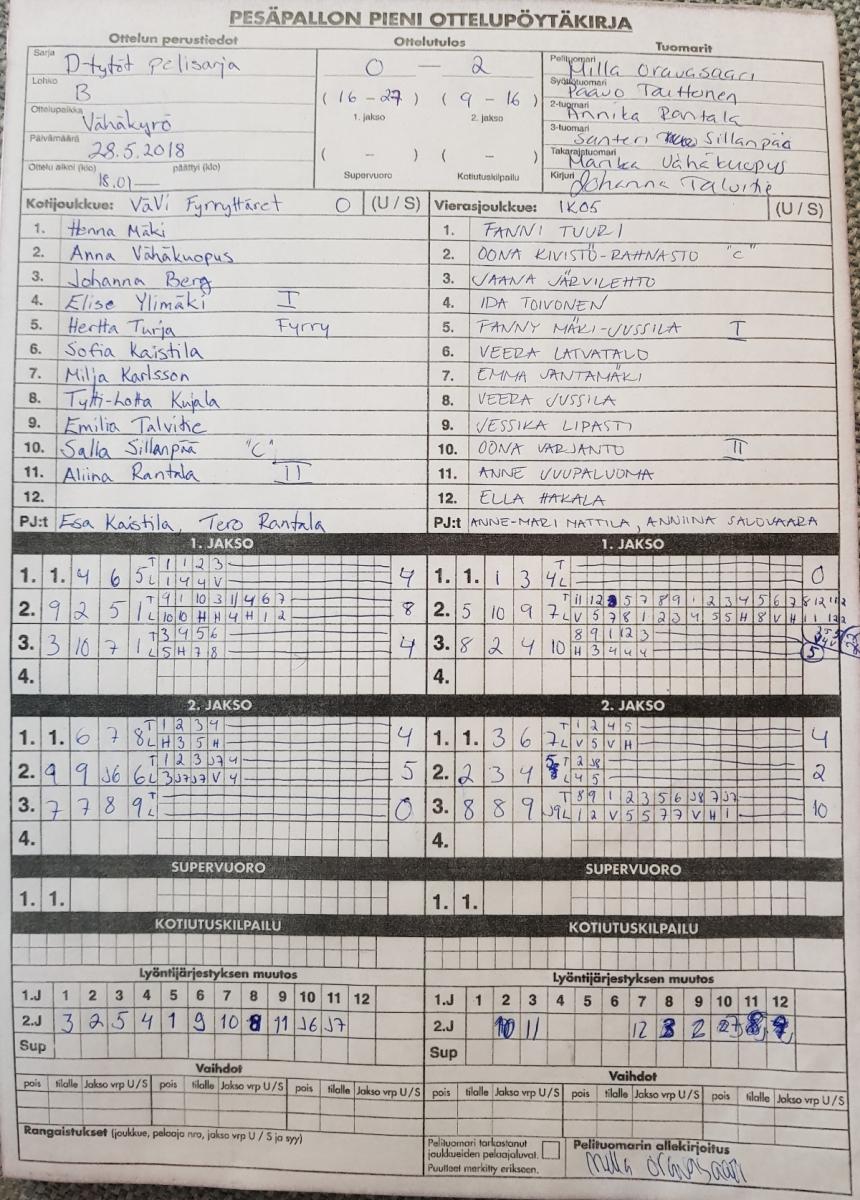 PESÄPALLON PIENI OTTELUPÖYTÄKIRJA
Ottelun perustiedot Ottelutulos Tuomarit
Sarja D-tytöt pelisarja
Lohko B
Ottelupaikka Vähäkyrö
Päivämäärä 28.5.2018
Ottelu alkoi (klo) päättyi (klo)
18.01 —
0 — 2
( 16 - 27 ) ( 9 - 16 )
1. jakso 2. jakso
( - ) ( - )
Supervuoro Kotiutuskilpailu
Pelituomari Milla Oravasaari
Syöttötuomari Paavo Taittonen
2-tuomari Annika Rantala
3-tuomari Santeri Sillanpää
Takarajatuomari Marika Vähäkuopus
Kirjuri Johanna Talvitie
Kotijoukkue: VäVi Fyrryttäret 0 (U / S)
1. Henna Mäki
2. Anna Vähäkuopus
3. Johanna Berg
4. Elise Ylimäki I
5. Hertta Turja Fyrry
6. Sofia Kaistila
7. Milja Karlsson
8. Tytti-Lotta Kujala
9. Emilia Talvitie
10. Salla Sillanpää "C"
11. Aliina Rantala II
12.
PJ:t Esa Kaistila, Tero Rantala
Vierasjoukkue: IK05 (U / S)
1. FANNI TUURI
2. OONA KIVISTÖ-RAHNASTO "C"
3. JAANA JÄRVILEHTO
4. IDA TOIVONEN
5. FANNY MÄKI-JUSSILA I
6. VEERA LATVATALO
7. EMMA JANTAMÄKI
8. VEERA JUSSILA
9. JESSIKA LIPASTI
10. OONA VARJANTO II
11. ANNE UUPALUOMA
12. ELLA HAKALA
PJ:t ANNE-MARI MATTILA, ANNIINA SALOVAARA
1. JAKSO
1. 1. 4 6 5 T 1 1 2 3 4
L 1 4 4 V
2. 9 2 5 1 T 9 1 10 3 11 4 6 7 8
L 10 10 H H 4 H 1 2
3. 3 10 7 1 T 3 4 5 6 4
L 5 H 7 8
4.
1. JAKSO
1. 1. 1 3 4 T 0
L
2. 5 10 9 7 T 11 12 5 7 8 9 1 2 3 4 5 6 7 8
L V 5 7 8 1 2 3 4 5 5 H 8 V H
3. 8 2 4 10 T 8 9 1 12 3 5
L H 3 4 4 4
4.
2. JAKSO
1. 1. 6 7 8 T 1 2 3 4 4
L H 3 5 H
2. 9 9 J6 6 T 1 2 3 J7 4 5
L 3 J7 J7 V 4
3. 7 7 8 9 T 0
L
4.
2. JAKSO
1. 1. 3 6 7 T 1 2 4 5 4
L V 5 V H
2. 2 3 4 T 2 J8 2
L 4 5
3. 8 8 9 J9 T 8 9 1 2 3 5 6 J8 7 J7 10
L 1 2 V 5 5 7 7 V H 1
4.
SUPERVUORO
1. 1.
SUPERVUORO
1. 1.
KOTIUTUSKILPAILU
KOTIUTUSKILPAILU
Lyöntijärjestyksen muutos
1.J 1 2 3 4 5 6 7 8 9 10 11 12
2.J 3 2 5 4 1 9 10 8 11 J6 J7
Sup
Lyöntijärjestyksen muutos
1.J 1 2 3 4 5 6 7 8 9 10 11 12
2.J 10 11 12 3 2
Sup
Vaihdot
pois tilalle Jakso vrp U / S pois tilalle Jakso vrp U / S pois tilalle Jakso vrp U / S
Vaihdot
pois tilalle Jakso vrp U / S pois tilalle Jakso vrp U / S pois tilalle Jakso vrp U / S
Rangaistukset (joukkue, pelaaja nro, jakso vrp U / S ja syy)
Pelituomari tarkastanut
joukkueiden pelaajaluvat.
Puutteet merkitty erikseen.
Pelituomarin allekirjoitus
Milla Oravasaari